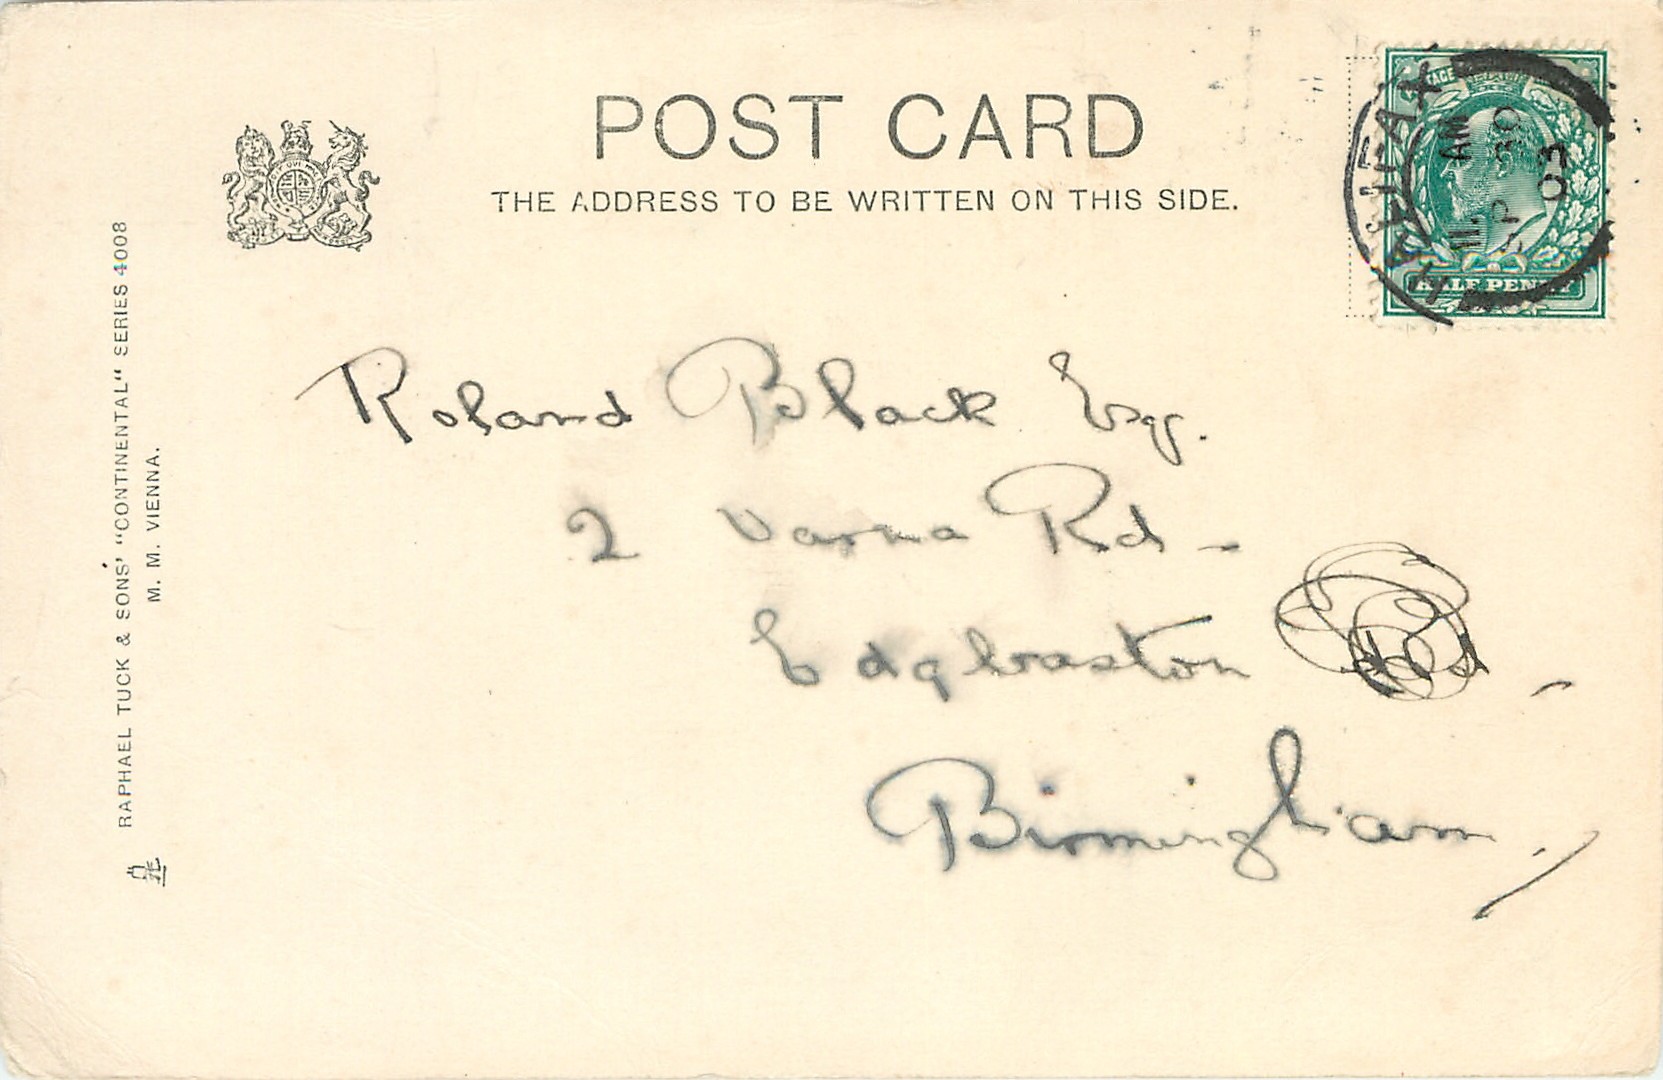 POST CARD
THE ADDRESS TO BE WRITTEN ON THIS SIDE.
HALIFAX
11 AM
AP 30
03
HALF PENNY
Roland Black Esq.
2 Varna Rd -
Edgbaston
Birmingham.
RAPHAEL TUCK & SONS' "CONTINENTAL" SERIES 4008
M. M. VIENNA.